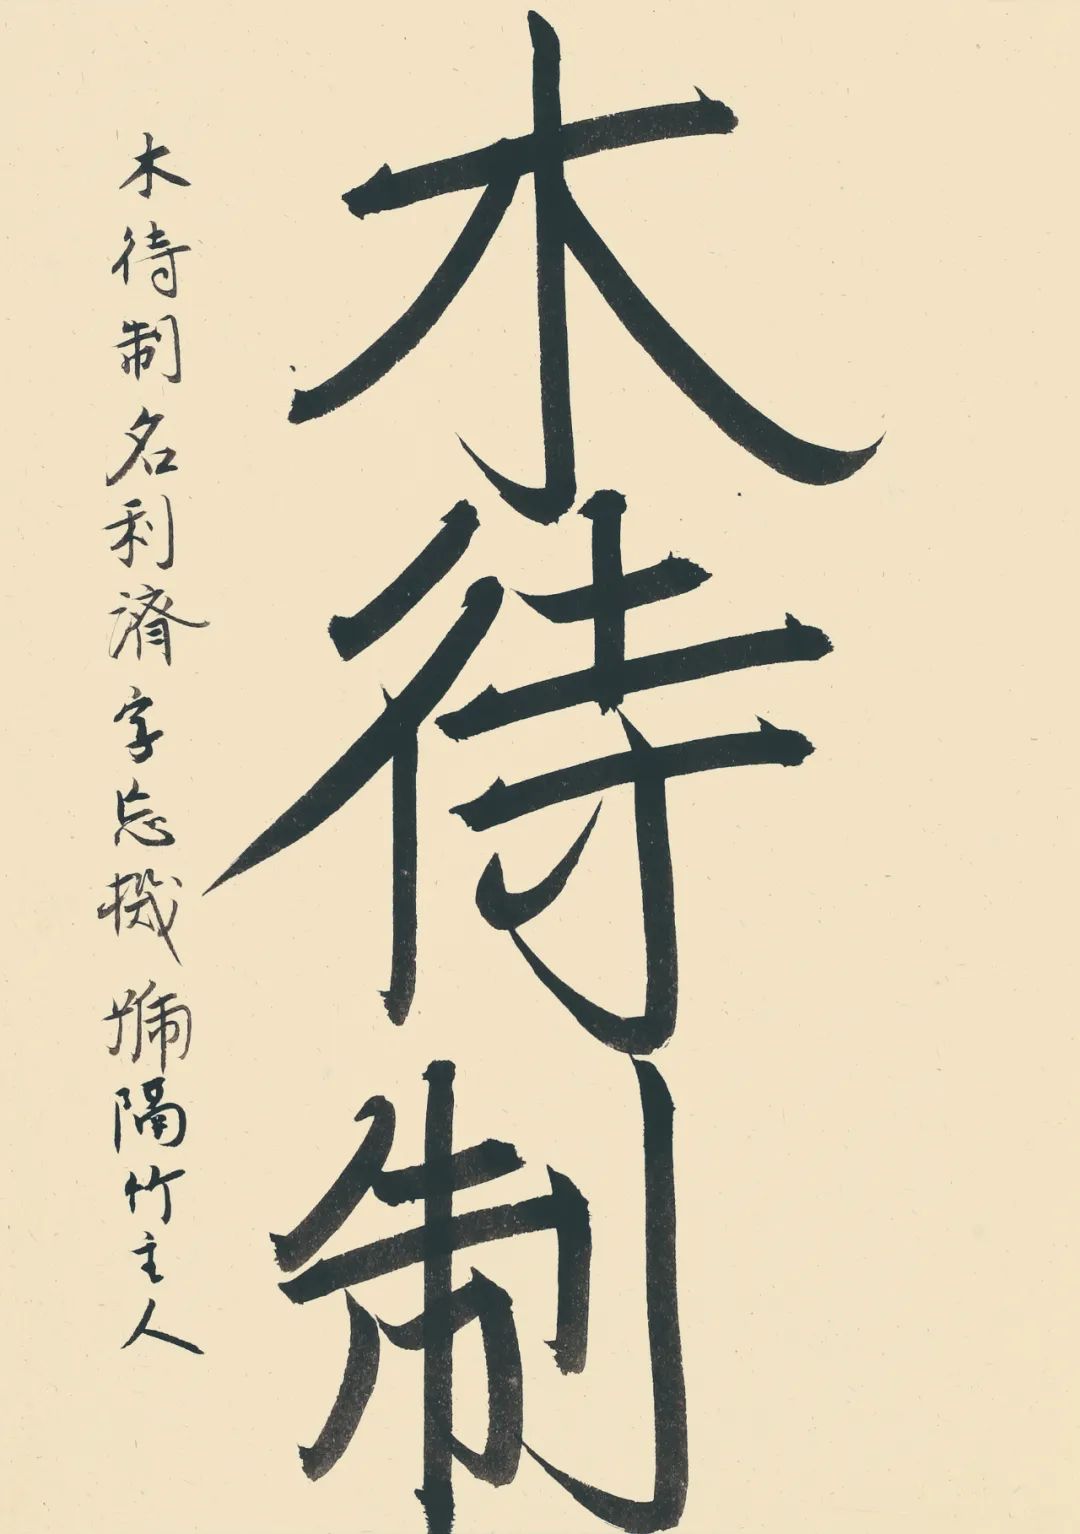 木待制
木待制名利濟字忘機號隔竹主人